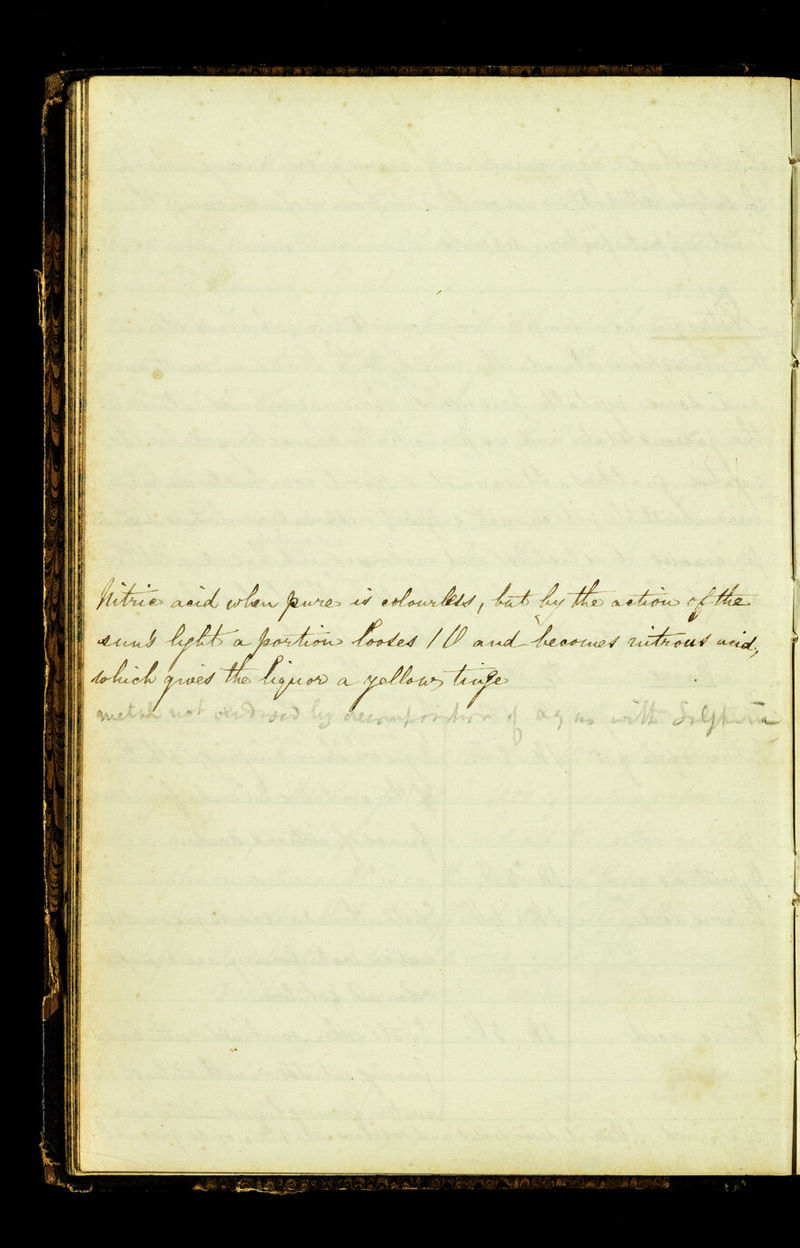 Nitric acid when pure is colourless, but by the action of the
sun's light a portion looses 1 O and becomes nitrous acid,
which gives the liquor a yellow tinge
metal not oxidised by decomposition of aq as with Sulphuric